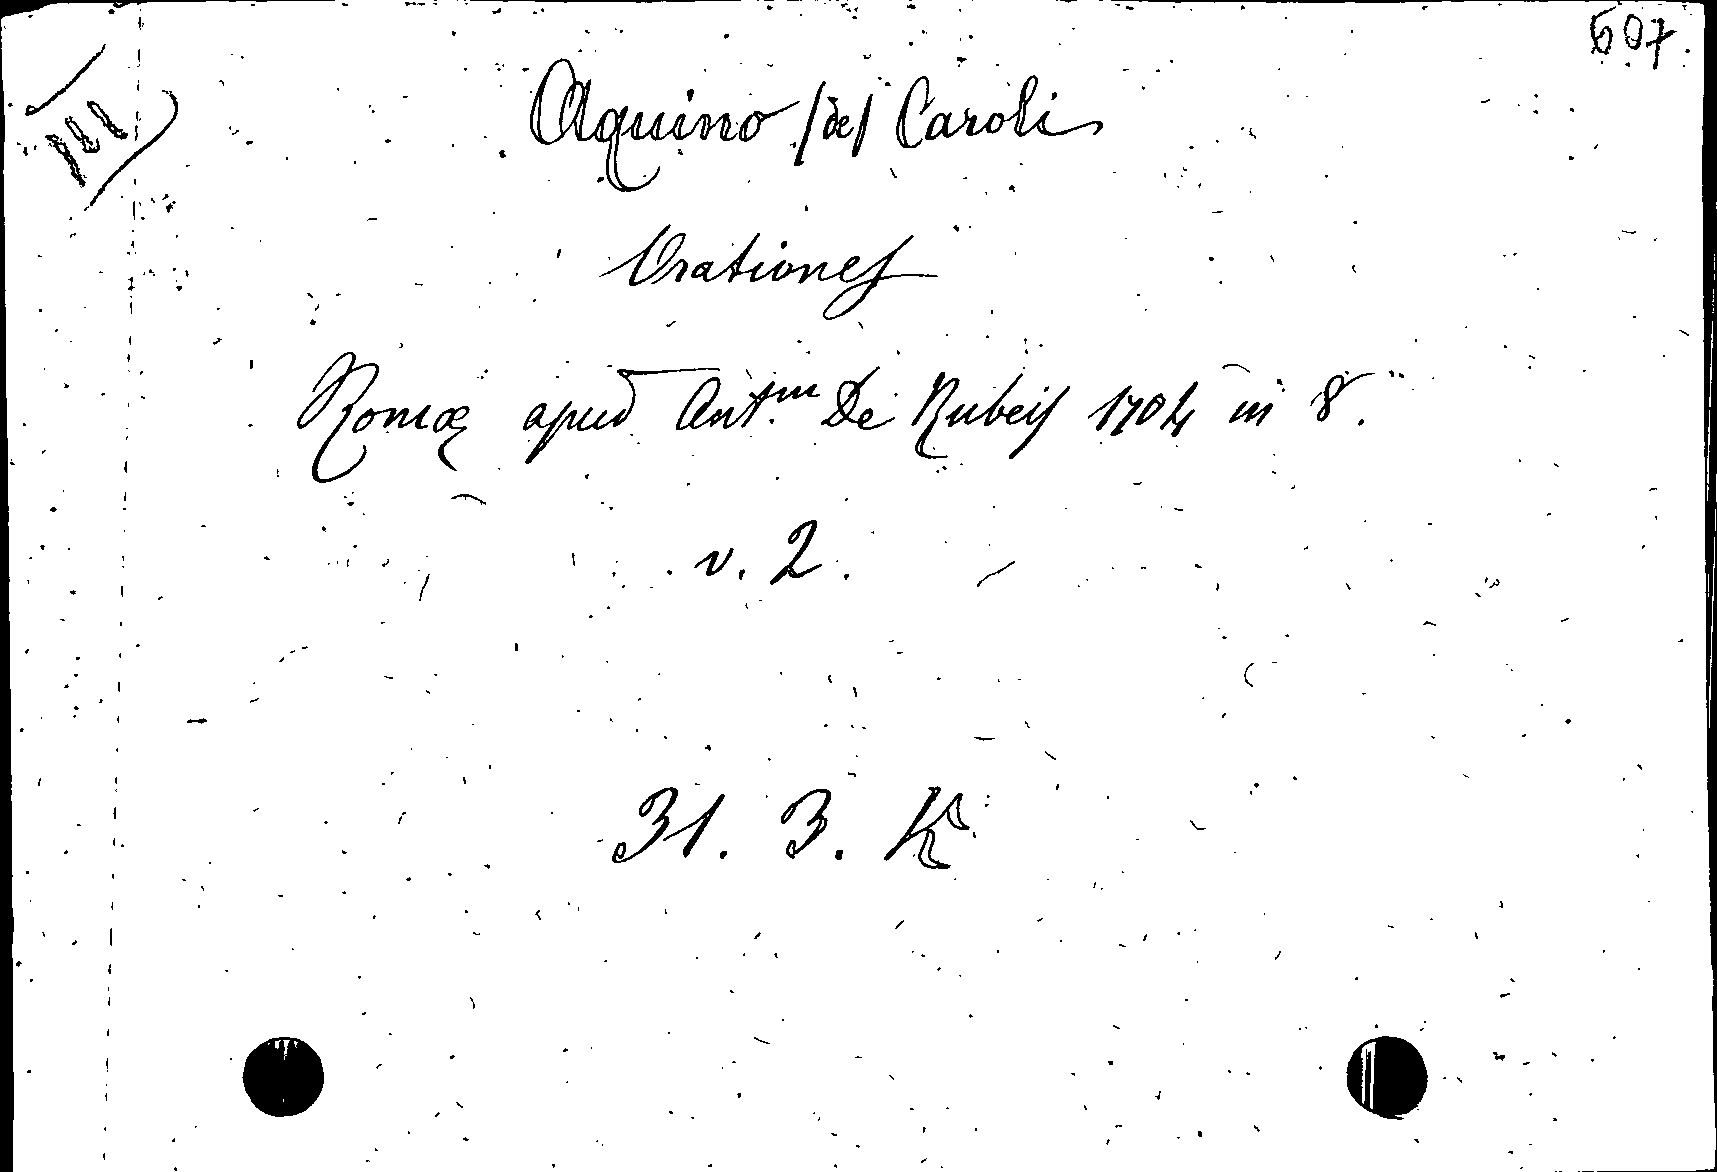 507
III
Aquino /de/ Caroli
Orationes
Romæ apud Ant.m De Rubeis 1704 in 8.
v. 2.
31. 3. K